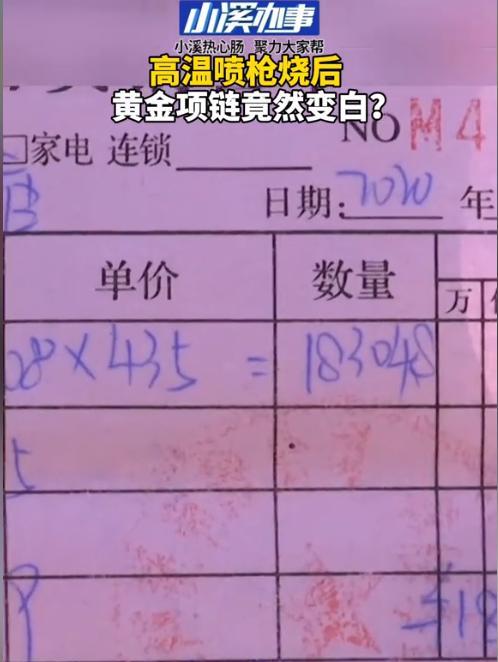 小溪办事
小溪热心肠 聚力大家帮
高温喷枪烧后
黄金项链竟然变白?
NO M4
□家电 连锁
日期: 2020 年
单价 数量 万
08×435 = 183048
5